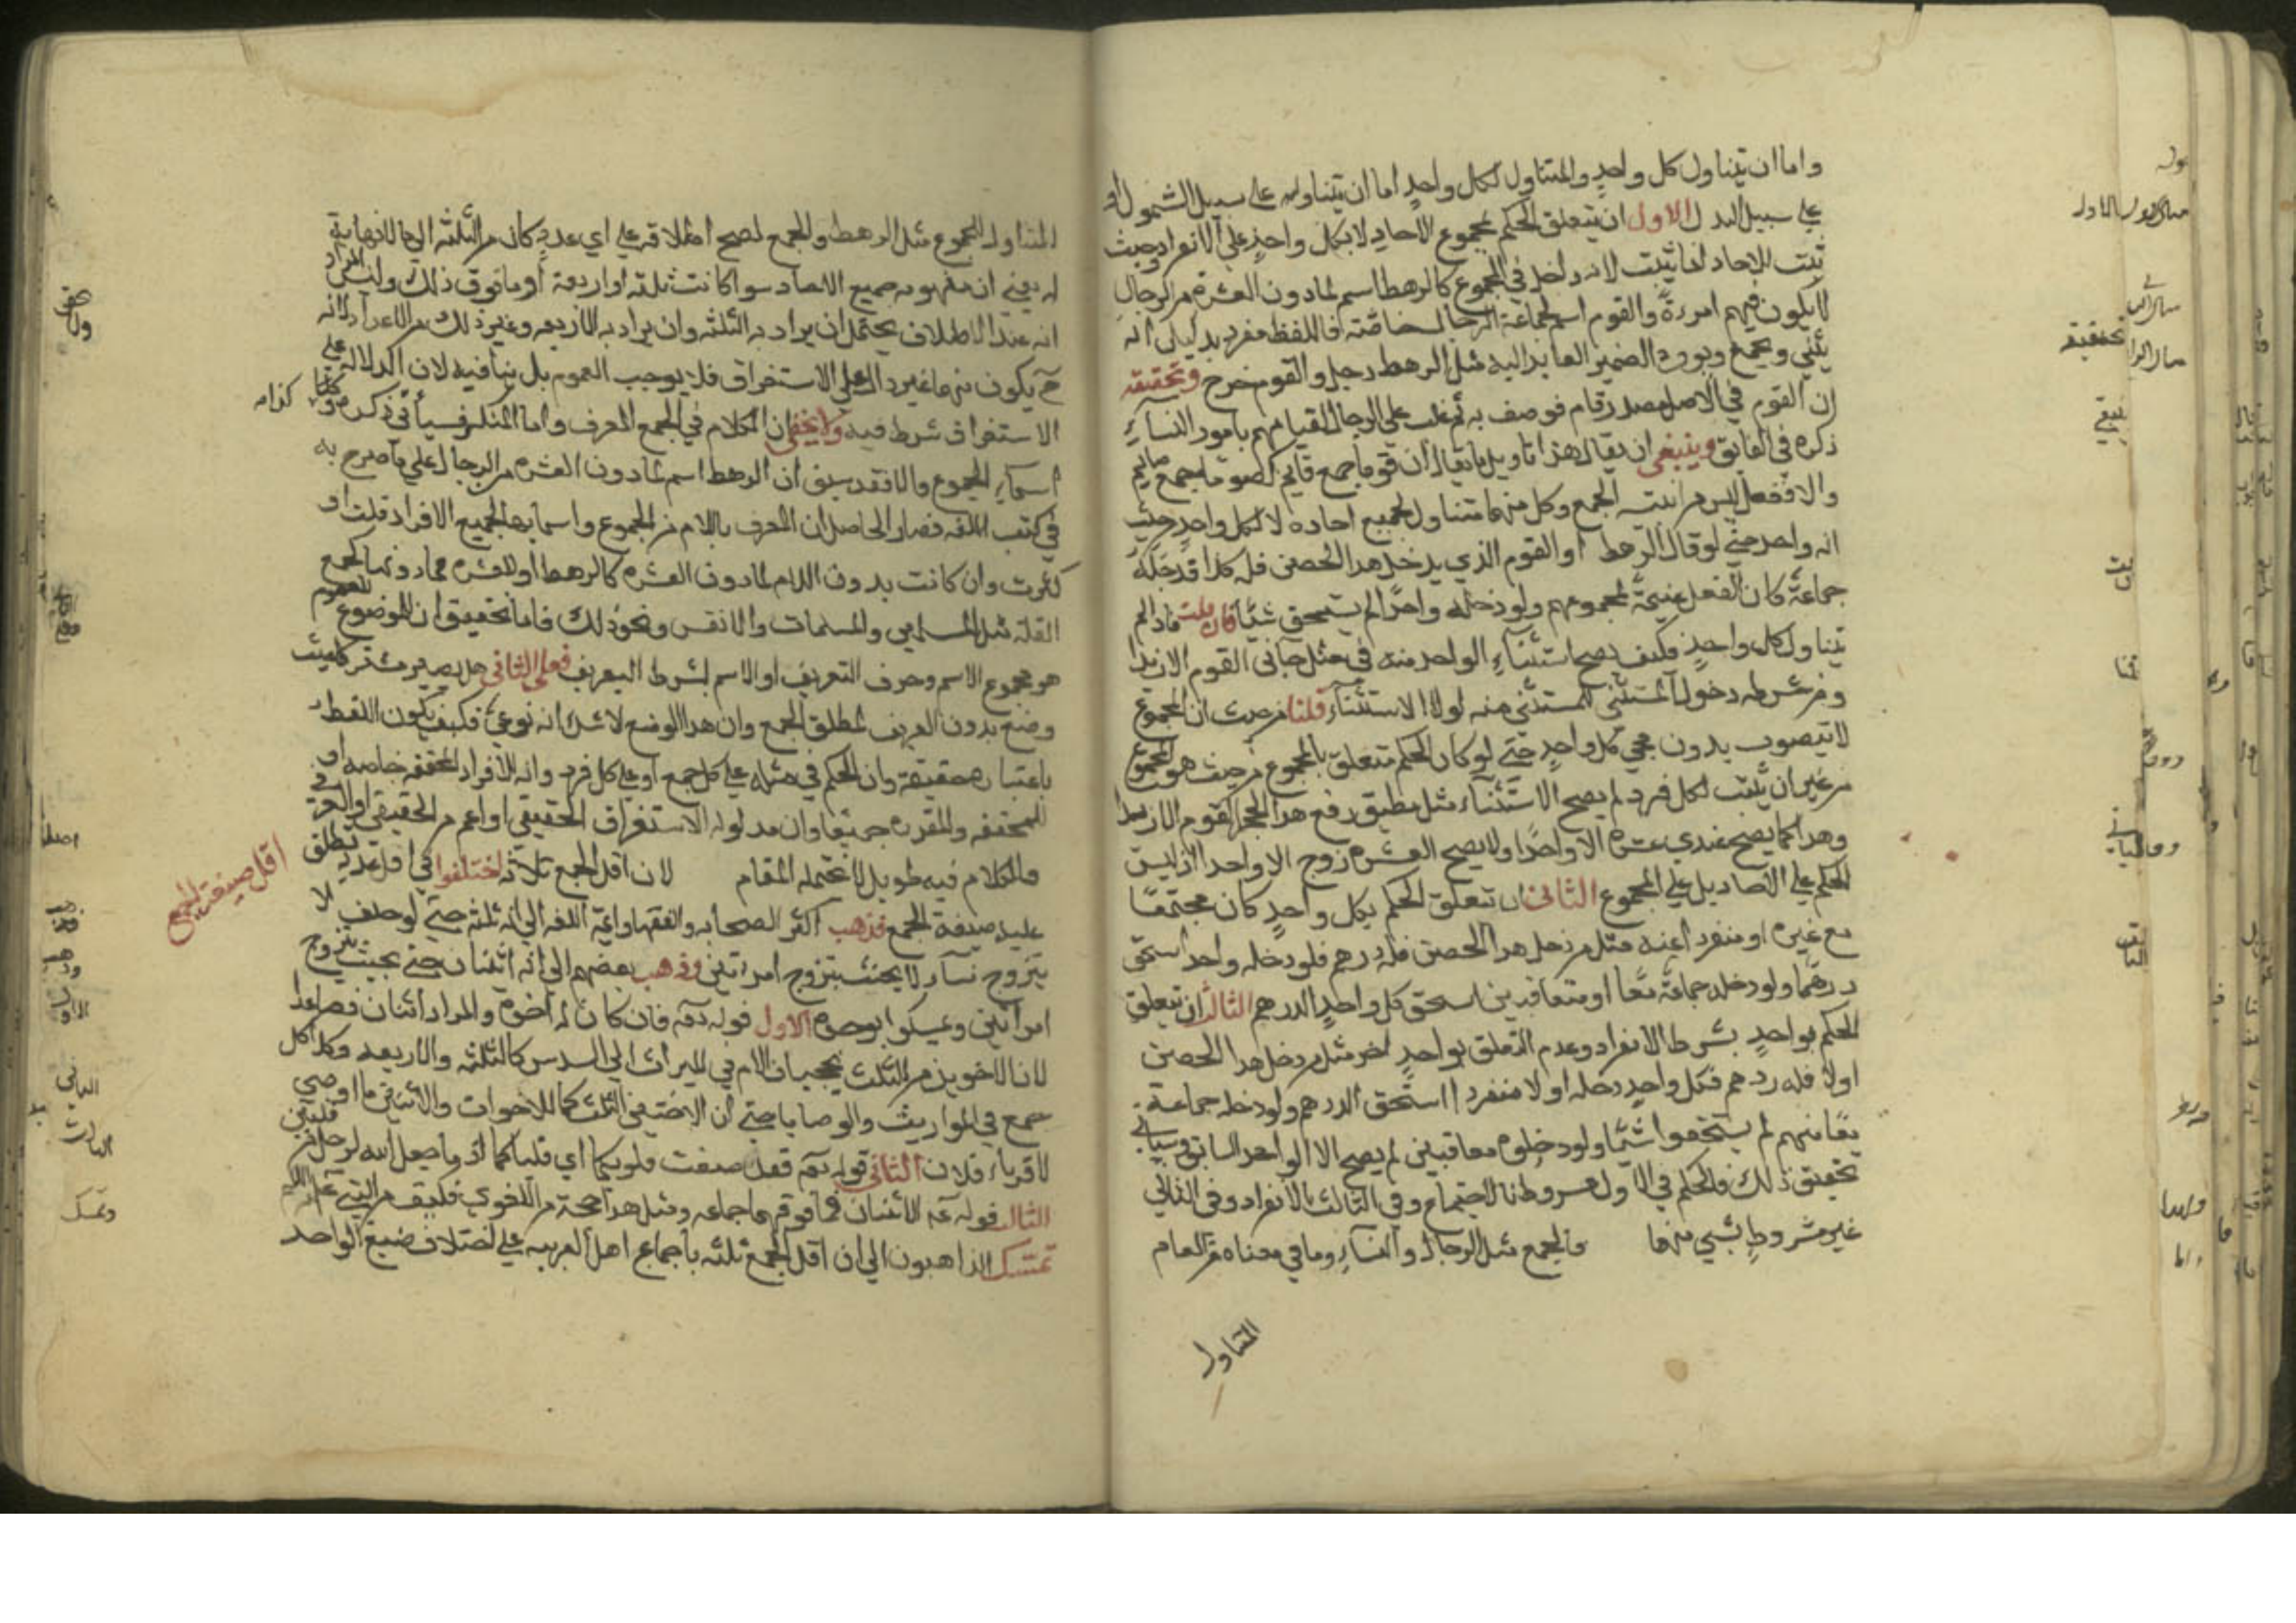 واما ان يتناول كل واحد والمتناول لكل واحد اما ان يتناوله على سبيل الشمول او
على سبيل البدل الاول ان يتعلق الحكم بمجموع الآحاد لا بكل واحد على الانفراد وحيث
ثبت للآحاد انما يثبت لانه داخل في المجموع كالرهط اسم لما دون العشرة من الرجال
لا يكون فيهم امرءة والقوم اسم لجماعة الرجال خاصة فاللفظ مفرد بدليل انه
يثني ويجمع ويوحد الضمير العايد اليه مثل الرهط دخل والقوم خرج وتحقيقه
ان القوم في الاصل مصدر قام فوصف به ثم غلب على الرجال لقيامهم بامور النساء
ذكره في الفايق وينبغي ان يقال هذا تاويل ما يقال ان قوما جمع قايم كصوم جمع صايم
والا ففعل ليس من ابنية الجمع وكل منهما متناول لجميع احاده لا لكل واحد من حيث
انه واحد حتى لو قال الرهط او القوم الذي يدخل هذا الحصن فله كذا فدخله
جماعة كان النفل غنيمة لمجموعهم ولو دخله واحدا لم يستحق شيئا فان قلت فاذا لم
يتناول كل واحد فكيف يصح استثناء الواحد منه في مثل جاني القوم الا زيدا
ومن شرطه دخول المستثنى في المستثنى منه لولا الاستثناء قلنا من حيث ان المجموع
لا يتصور بدون مجي كل واحد حتى لو كان الحكم متعلق بالمجموع من حيث هو المجموع
من غير ان يثبت لكل فرد لم يصح الاستثناء مثل يطيق رفع هذا الحجر القوم الا زيدا
وهذا كما يصح عندي عشرة الا واحدا ولا يصح العشرة زوج الا واحدا اذ ليس
الحكم على الآحاد بل على المجموع الثاني ان يتعلق الحكم بكل واحد كان مجتمعا
مع غيره او منفردا عنه مثل من دخل هذا الحصن فله درهم فلو دخله واحد استحق
درهما ولو دخله جماعة معا او متعاقبين استحق كل واحد الدرهم الثالث ان يتعلق
الحكم بواحد بشرط الانفراد وعدم التعلق بواحد آخر مثل من دخل هذا الحصن
اولا فله درهم فكل واحد دخله اولا منفردا استحق الدرهم ولو دخله جماعة
معا منهم لم يستحقوا شيئا ولو دخلوه معاقبين لم يصح الا الواحد السابق وسياتي
تحقيق ذلك فالحكم في الاول مشروط بالاجتماع وفي الثالث بالانفراد وفي الثاني
غير مشروط بشيء منهما والجمع مثل الرجال والنساء وما في معناه من العام
المتناول
المتناول للمجموع مثل الرهط والجمع لصح اطلاقه على اي عدد كان من الثلثه الى ما لا نهاية
له يعني ان مفهومه جميع الاحاد سوا كانت ثلثة او اربعة او ما فوق ذلك وليس المراد
انه عند الاطلاق يحتمل ان يراد به الثلثة وان يراد به الاربعه وغير ذلك من الاعداد لانه
ح يكون مبهما غير دال على الاستغراق فلا يوجب العموم بل ينافيه لان الدلالة على
الاستغراق شرط فيه ولا يخفى ان الكلام في الجمع المعرف واما المنكر فسياتي ذكره وكذا
اسماء الجموع والا فقد سبق ان الرهط اسم لما دون العشره من الرجال على ما صرح به
في كتب اللغه فصار الحاصل ان المعرف باللام من الجموع واسمايها لجميع الافراد قلت او
كثرت وان كانت بدون اللام لما دون العشره كالرهط او للعشره فما دونها كجمع
القلة مثل المسلمين والمسلمات والانفس ونحو ذلك فاما تحقيق ان الموضوع للعموم
هو مجموع الاسم وحرف التعريف او الاسم بشرط التعريف فعلى الثاني هل يصير مشتركا حيث
وضع بدون التعريف لمطلق الجمع وان هذا الوضع لا شك انه نوعي فكيف يكون اللفظ
باعتباره حقيقة وان الحكم في مثله على كل جمع او على كل فرد وانه للافراد المحققه خاصه او
للمحققه والمقدره جميعا وان مدلوله الاستغراق الحقيقي او اعم من الحقيقي او العرفي
فالكلام فيه طويل لا يحتمله المقام لان اقل الجمع ثلاثة اختلفوا في اقل عدد يطلق
اقل صيغة الجمع
عليه صيغة الجمع فذهب اكثر الصحابه والفقها وائمة اللغه الى انه ثلثة حتى لو حلف لا
يتزوج نساء لا يحنث بتزوج امراتين وذهب بعضهم الى انه اثنان حتى يحنث بتزوج
امراتين وتمسكوا بوجوه الاول قوله تعه فان كان له اخوة والمراد اثنان فصاعدا
لان الاخوين من الثلث يحجبان الام في الميراث الى السدس كالثلثه والاربعه وكذا كل
جمع في المواريث والوصايا حتى ان الاختين الثلث كما للاخوات والاثنين ما اوصى
لاقرباء فلان الثاني قوله تعه فقد صغت قلوبكما اي قلباكما اذ ما جعل الله لرجل من قلبين
الثالث قوله عه الاثنان فما فوقهما جماعه ومثل هذا حجة من اللغوي فكيف من النبي
تمسك الذاهبون الى ان اقل الجمع ثلثه باجماع اهل العربيه على اختلاف صيغ الواحد